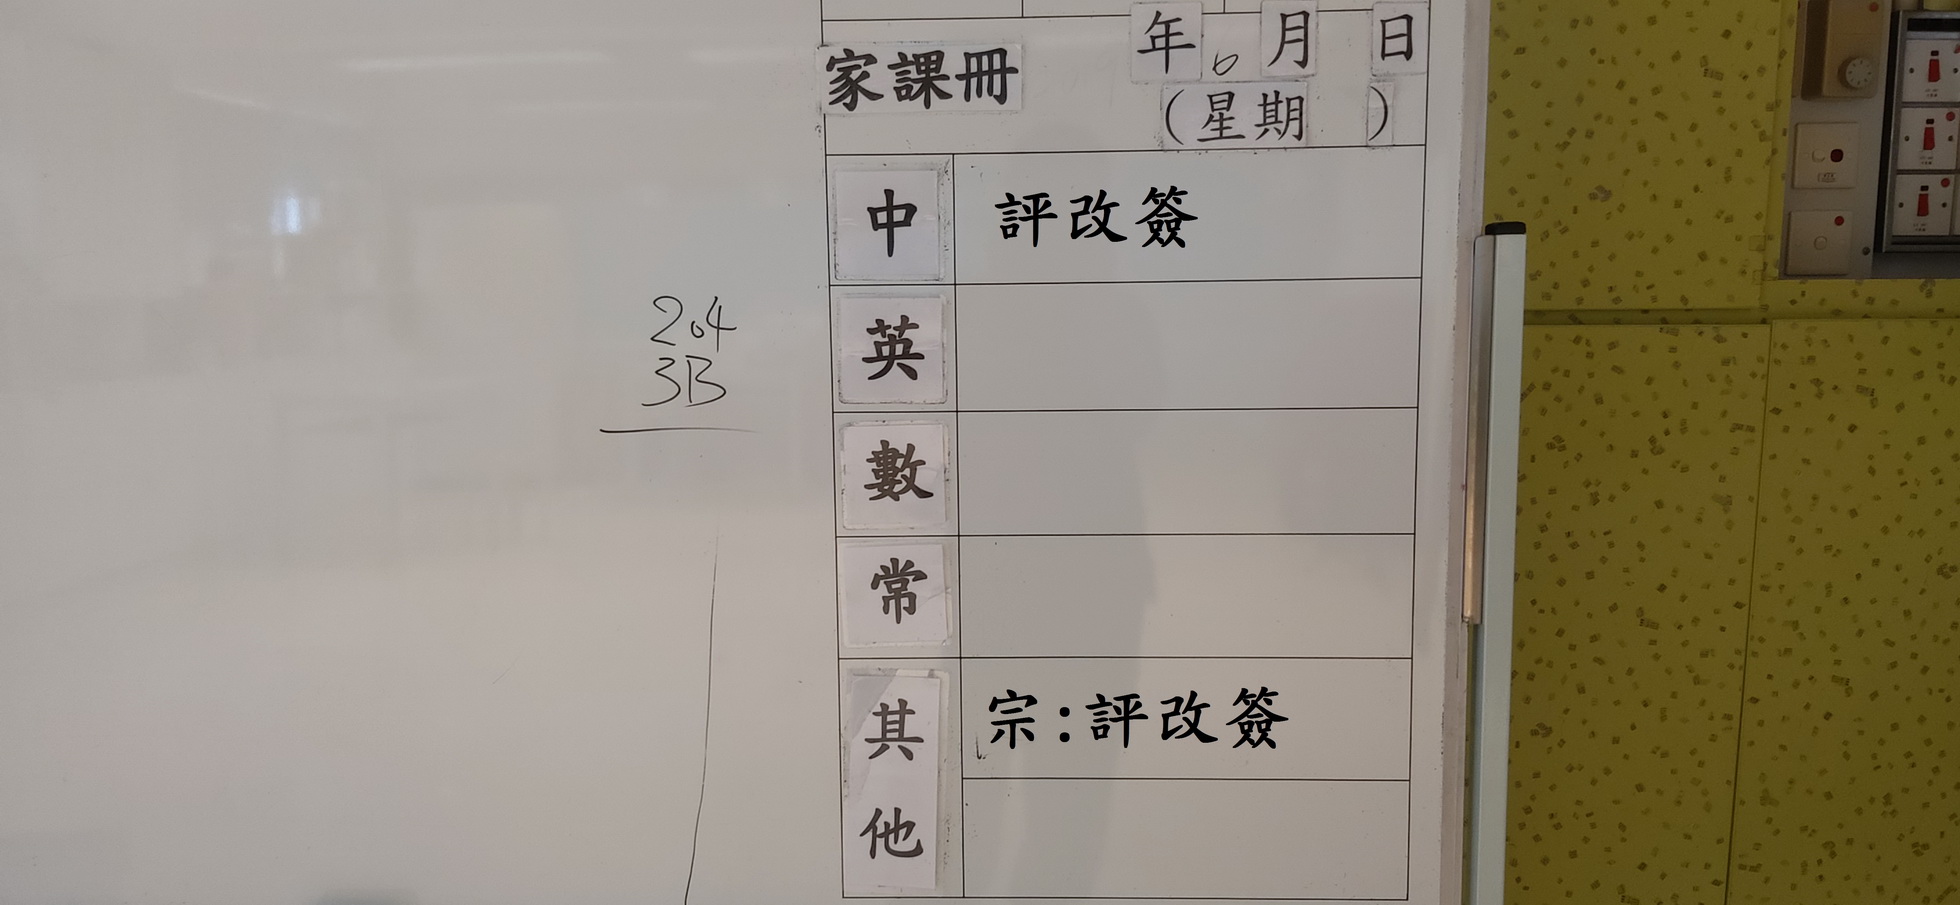 年6月 日
家課冊
(星期 )
中 評改簽
204
3B
英
數
常
其他
宗:評改簽